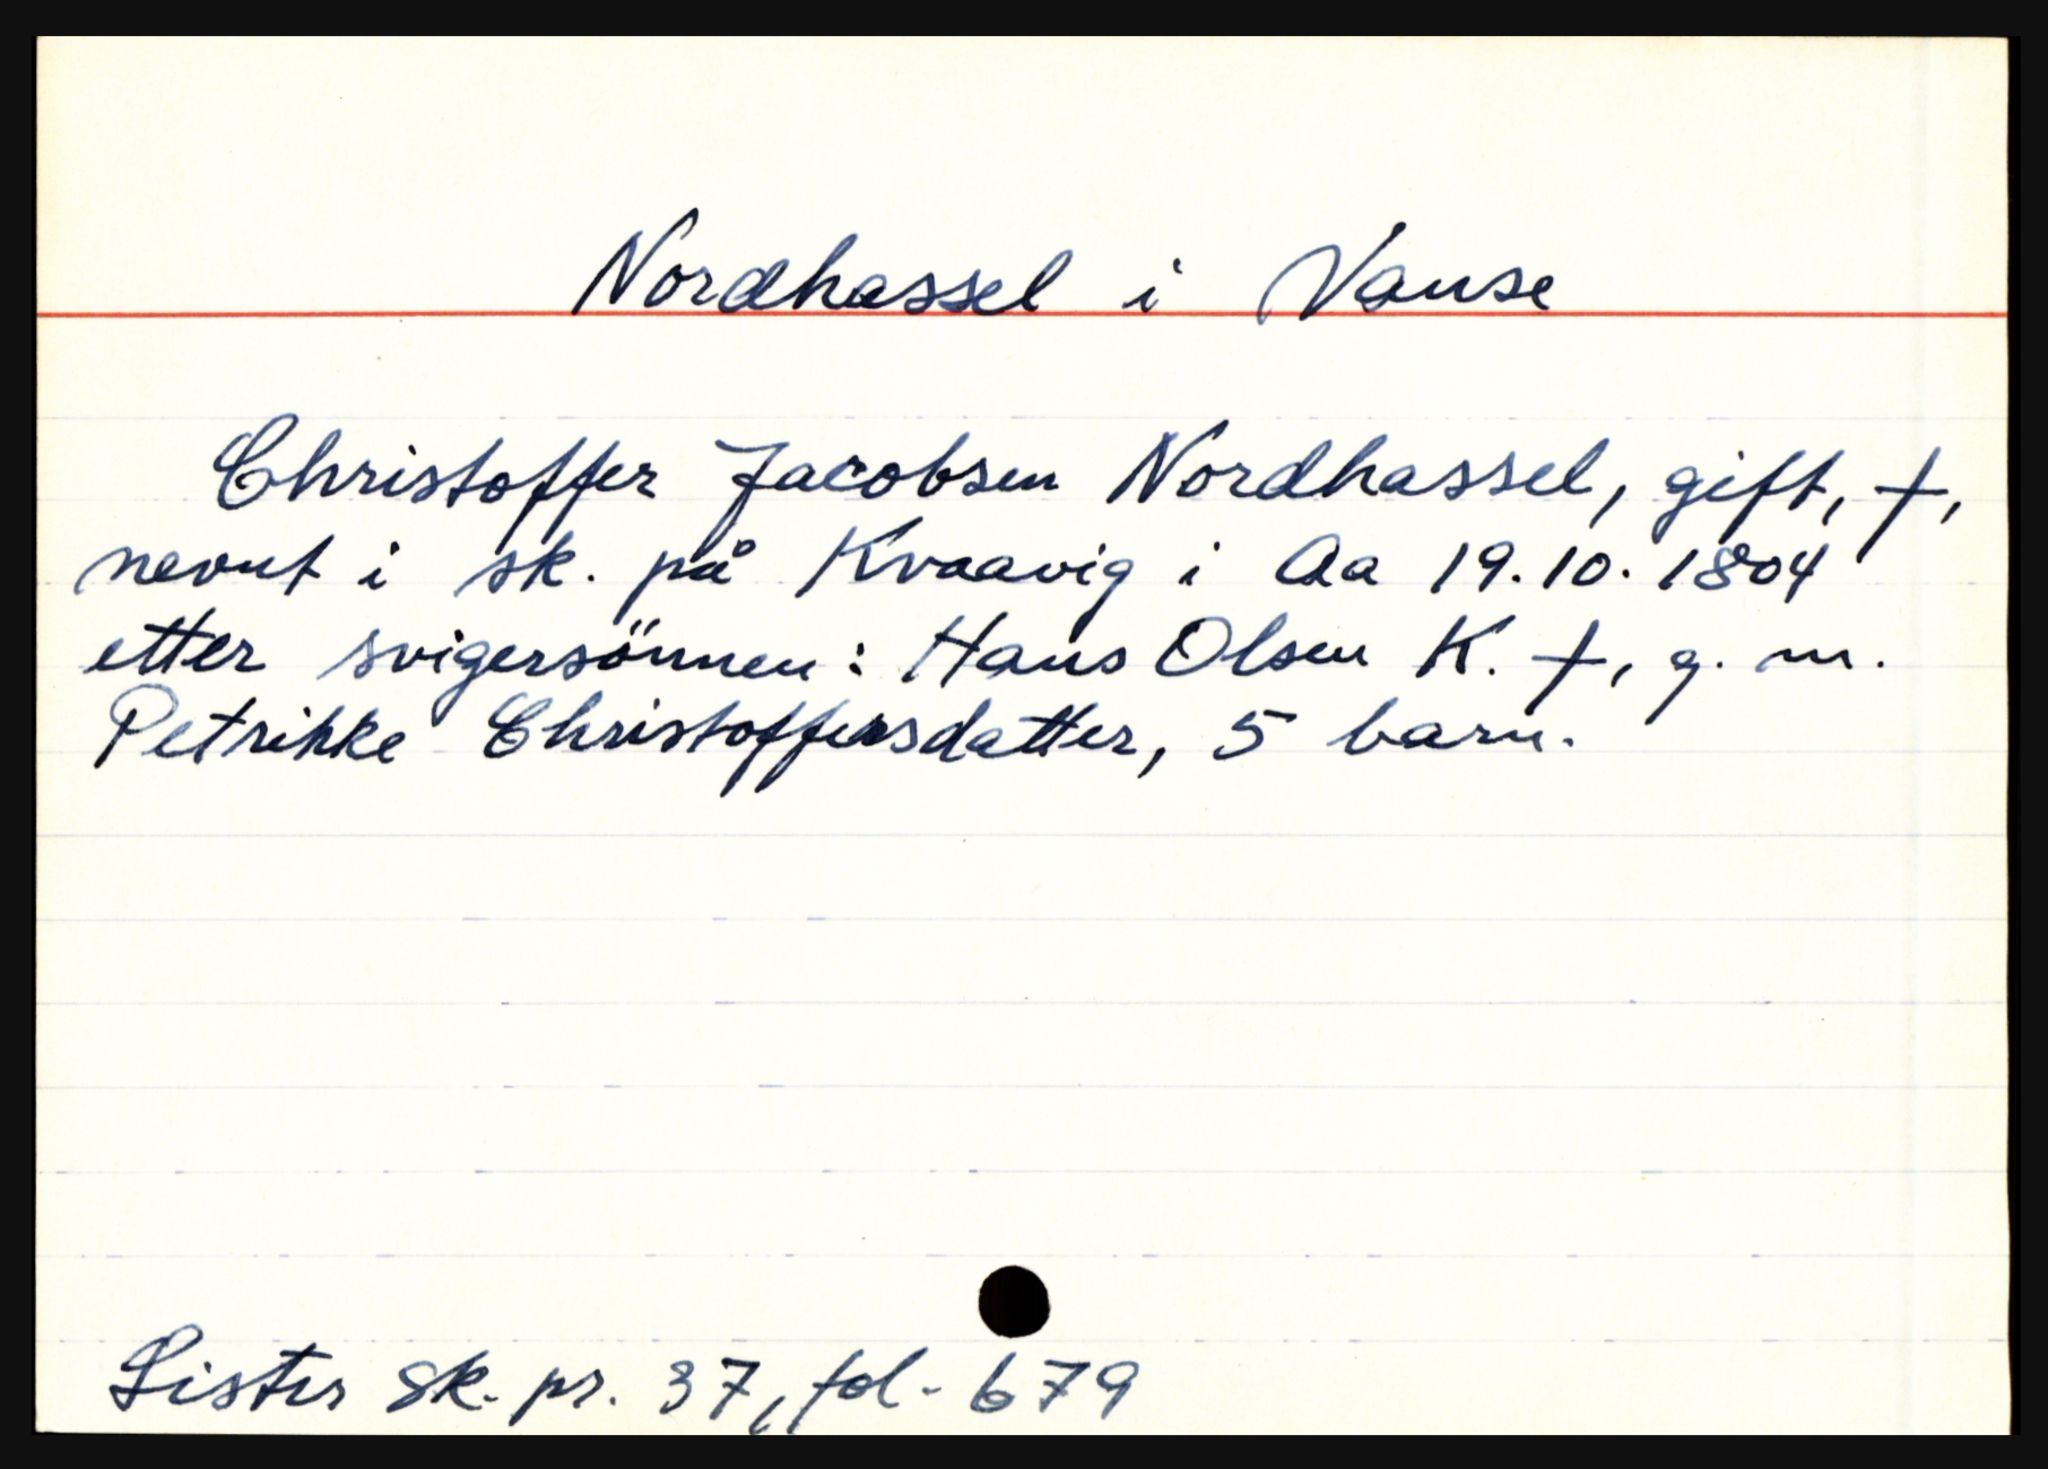 Nordhassel i Vanse
Christoffer Jacobsen Nordhassel, gift, †,
nevnt i sk. på Kvaavig i Aa 19.10.1804
etter svigersönnen: Hans Olsen K. †, g. m.
Petrikke Christoffersdatter, 5 barn.
Lister sk. pr. 37, fol. 679